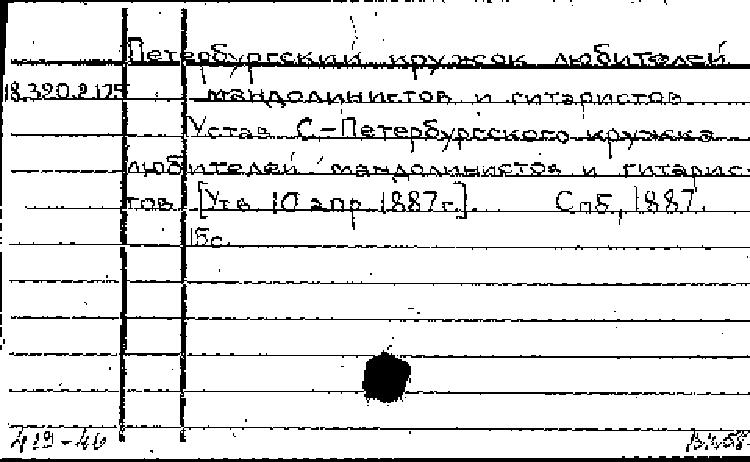 Петербургский кружок любителей
18.320.2.175 мандолинистов и гитаристов
Устав С.-Петербургского кружка
любителей мандолинистов и гитарис-
тов. [Утв. 10 апр. 1887 г.]. Спб, 1887.
15 с.
419-46